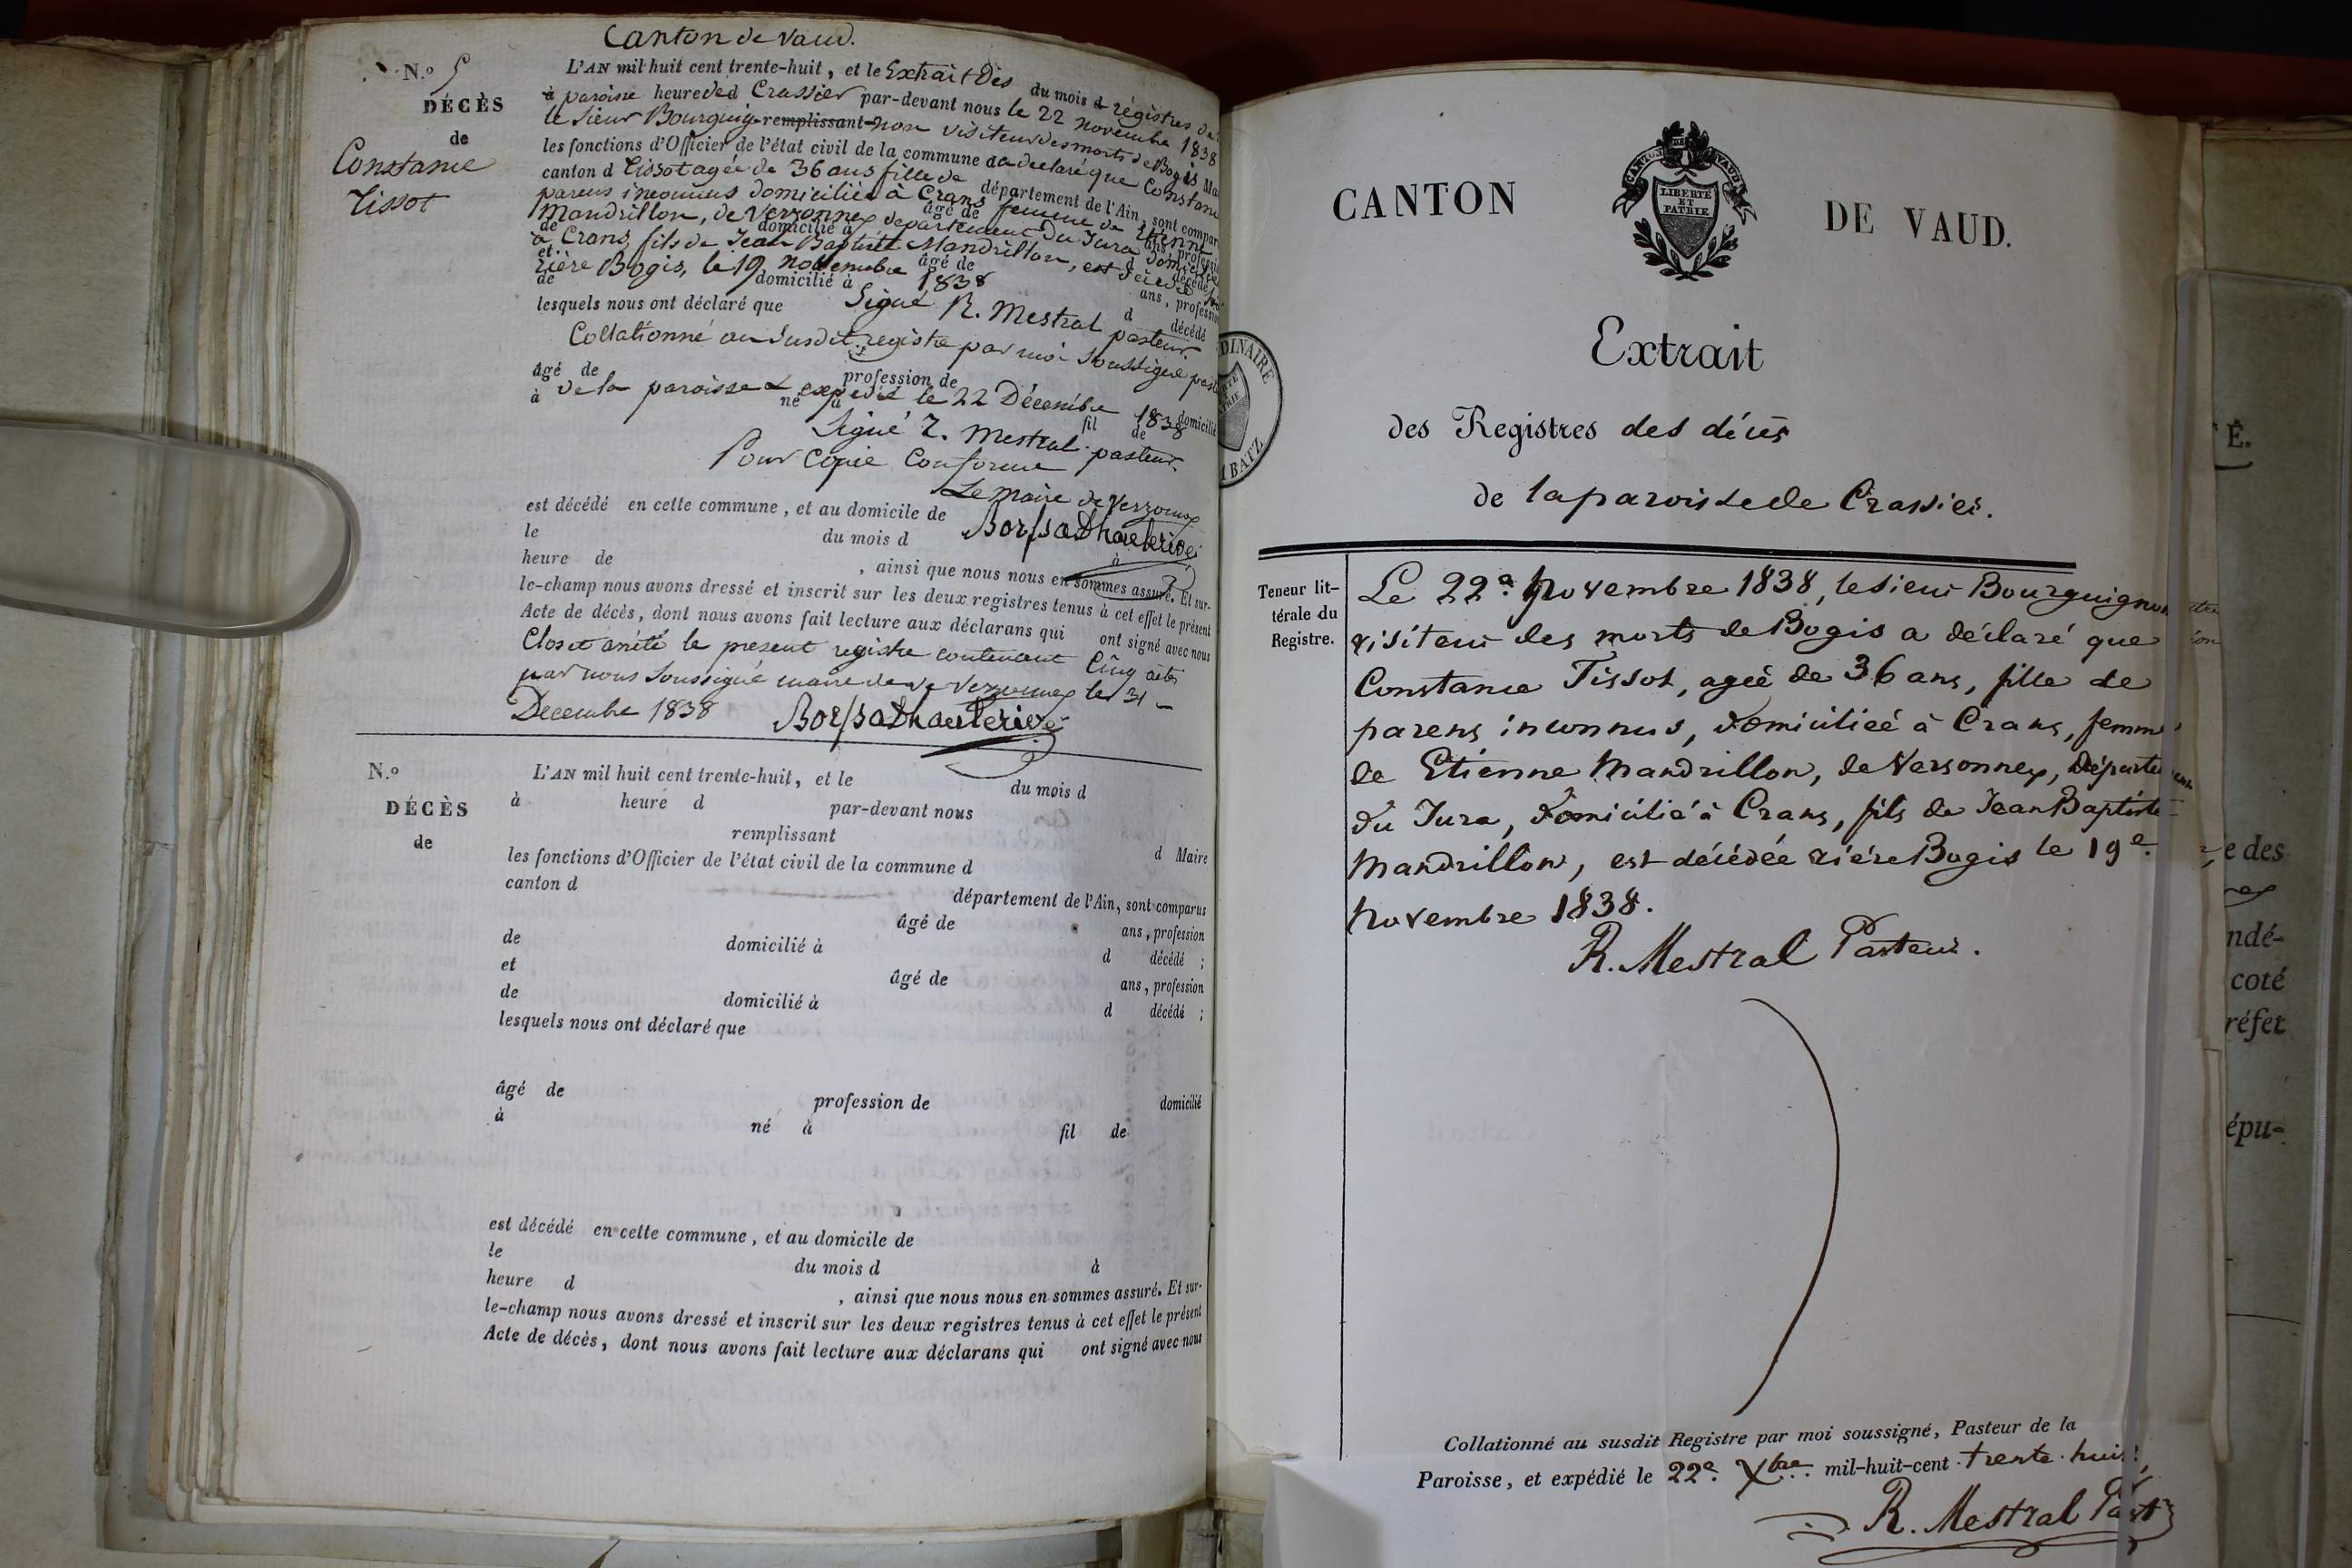 Canton de Vaud.
N.o 5
DÉCÈS
de
Constance
Tissot
L'AN mil huit cent trente-huit, et le Extrait Des du mois d régistres de
à paroisse heure ded Crassier par-devant nous le 22 novembre 1838
le sieur Bourguig- remplissant non visiteur des morts de Bogis Ma
les fonctions d'Officier de l'état civil de la commune d a declaré que Constance
canton d Tissot agée de 36 ans fille de département de l'Ain, sont compar
parens inconnus domiciliée à Crans femme de Etienne
âgé de ans, profession
Mandrillon, de Verzonnex departement du Jura domicilié
de domicilié à d décédé
à Crans, fils de Jean Baptiste Mandrillon, est décédée
et âgé de ans, profession
rière Bogis, le 19 novembre 1838
de domicilié à d décédé
lesquels nous ont déclaré que Signé R. Mestral pasteur.
Collationné au susdit registre par moi soussigné past
âgé de profession de domicilié
de la paroisse & expédié le 22 Décembre 1838
à né à fil de
Signé R. Mestral pasteur.
Pour Copie Conforme
Le maire de Verzonnex
est décédé en cette commune, et au domicile de
le du mois d à
heure de , ainsi que nous nous en sommes assuré. Et sur-
le-champ nous avons dressé et inscrit sur les deux registres tenus à cet effet le présent
Acte de décès, dont nous avons fait lecture aux déclarans qui ont signé avec nous
Clos et arrêté le present registre contenant Cinq actes
par nous soussigné maire de Verzonnex le 31
Decembre 1838
N.o
DÉCÈS
de
L'AN mil huit cent trente-huit, et le du mois d
à heure d par-devant nous
remplissant d Maire
les fonctions d'Officier de l'état civil de la commune d
canton d département de l'Ain, sont comparus
âgé de ans, profession
de domicilié à d décédé ;
et âgé de ans, profession
de domicilié à d décédé ;
lesquels nous ont déclaré que
âgé de profession de domicilié
à né à fil de
est décédé en cette commune, et au domicile de
le du mois d à
heure d , ainsi que nous nous en sommes assuré. Et sur-
le-champ nous avons dressé et inscrit sur les deux registres tenus à cet effet le présent
Acte de décès, dont nous avons fait lecture aux déclarans qui ont signé avec nous
DINAIRE
BATZ
CANTON DE VAUD
LIBERTÉ
ET
PATRIE
CANTON DE VAUD.
Extrait
des Registres des décès
de la paroisse de Crassier.
Teneur lit-
térale du
Registre.
Le 22e. Novembre 1838, le sieur Bourguignon
visiteur des morts de Bogis a déclaré que
Constance Tissot, agée de 36 ans, fille de
parens inconnus, domiciliée à Crans, femme
de Etienne Mandrillon, de Versonnex, Départe
du Jura, domicilié à Crans, fils de Jean Baptiste
Mandrillon, est décédée rière Bogis le 19e.
Novembre 1838.
R. Mestral Pasteur.
Collationné au susdit Registre par moi soussigné, Pasteur de la
Paroisse, et expédié le 22e. Xbre. mil-huit-cent trente-huit,
R. Mestral Past
É.
e des
ndé-
coté
réfet
épu-